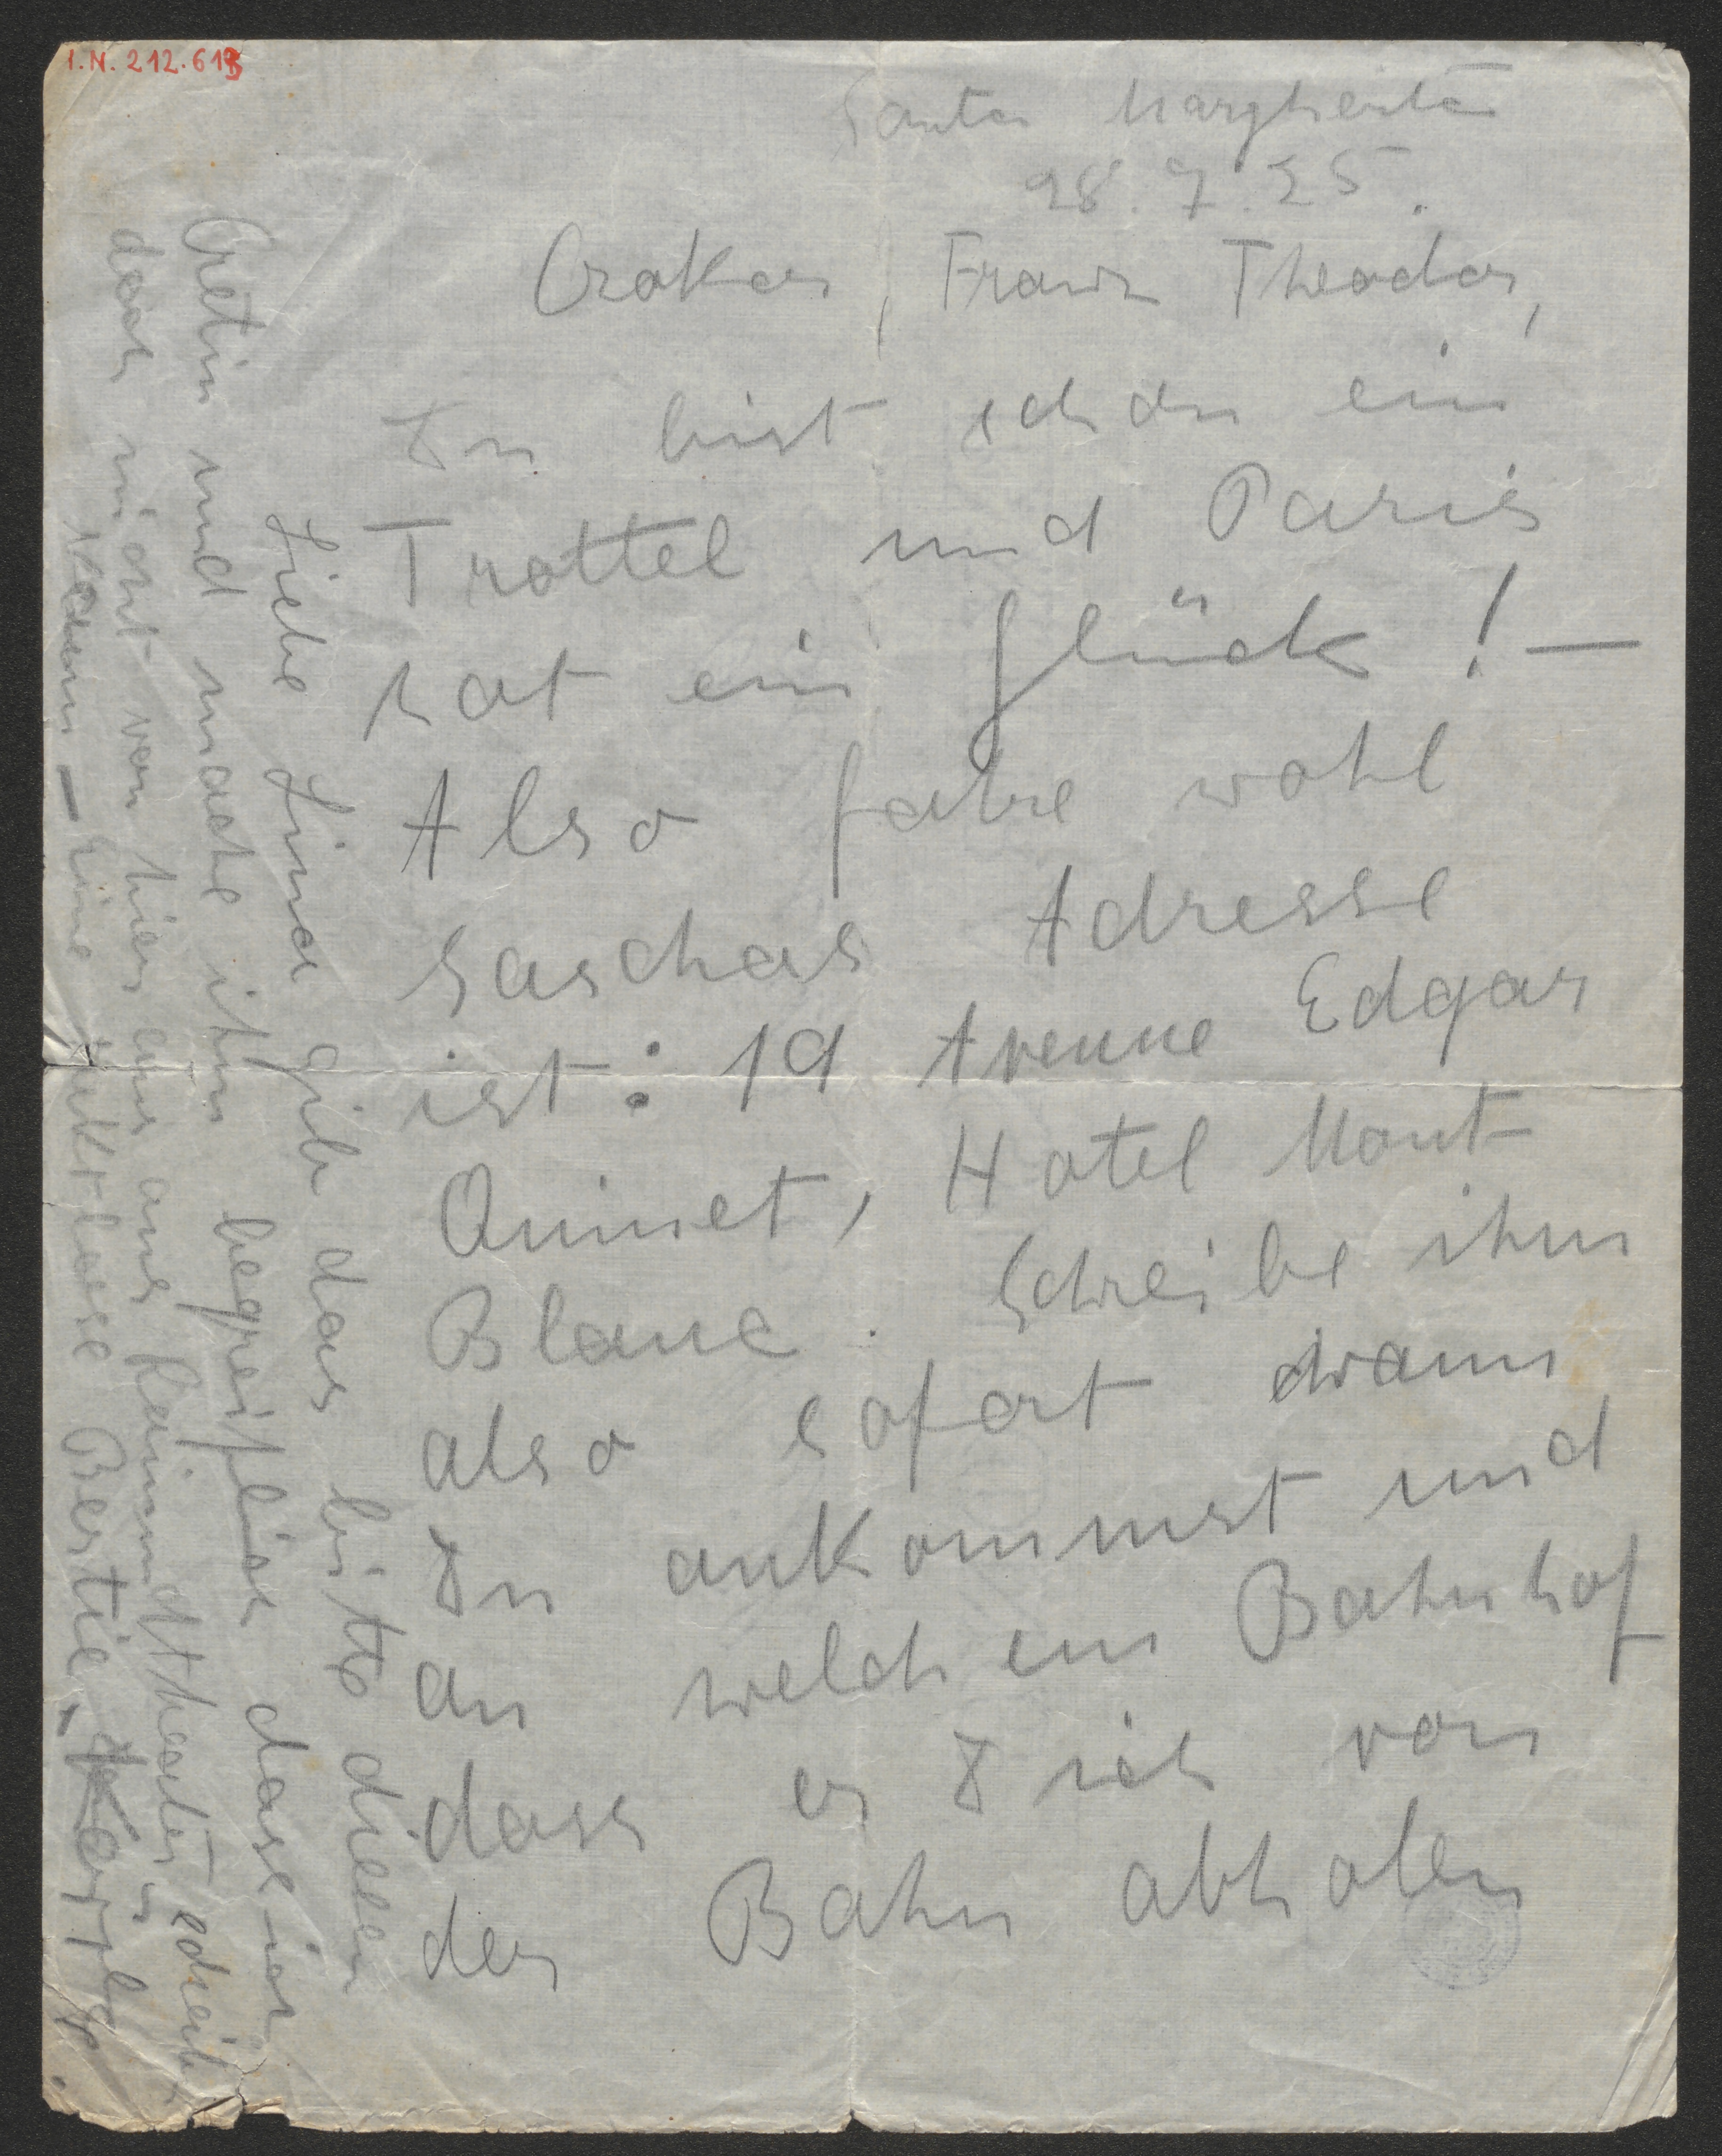 I.N. 212.613
Santa Margherita
28.7.25.
Franz Theodor,
Du bist schon ein
Trottel und Paris
hat ein Glück! —
Also fahre wohl
Saschas Adresse
ist: 19 Avenue Edgar
Quinet, Hotel Mont
Blanc. Schreibe ihm
also sofort wann
Du ankommst und
an welchem Bahnhof
dass er Dich von
der Bahn abholen
Liebe Lina gib das bitte diesem
Cretin und mache ihm begreiflich dass ich
doch nicht von hier aus ans schreiben
kann — Eine Bestie,